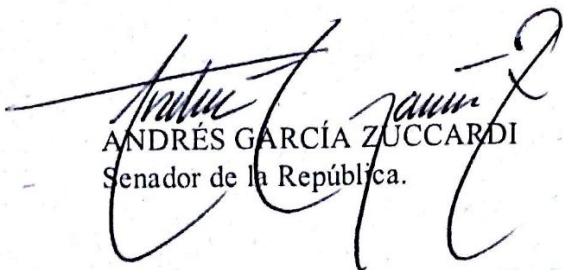 ANDRÉS GARCÍA ZUCCARDI
Senador de la República.